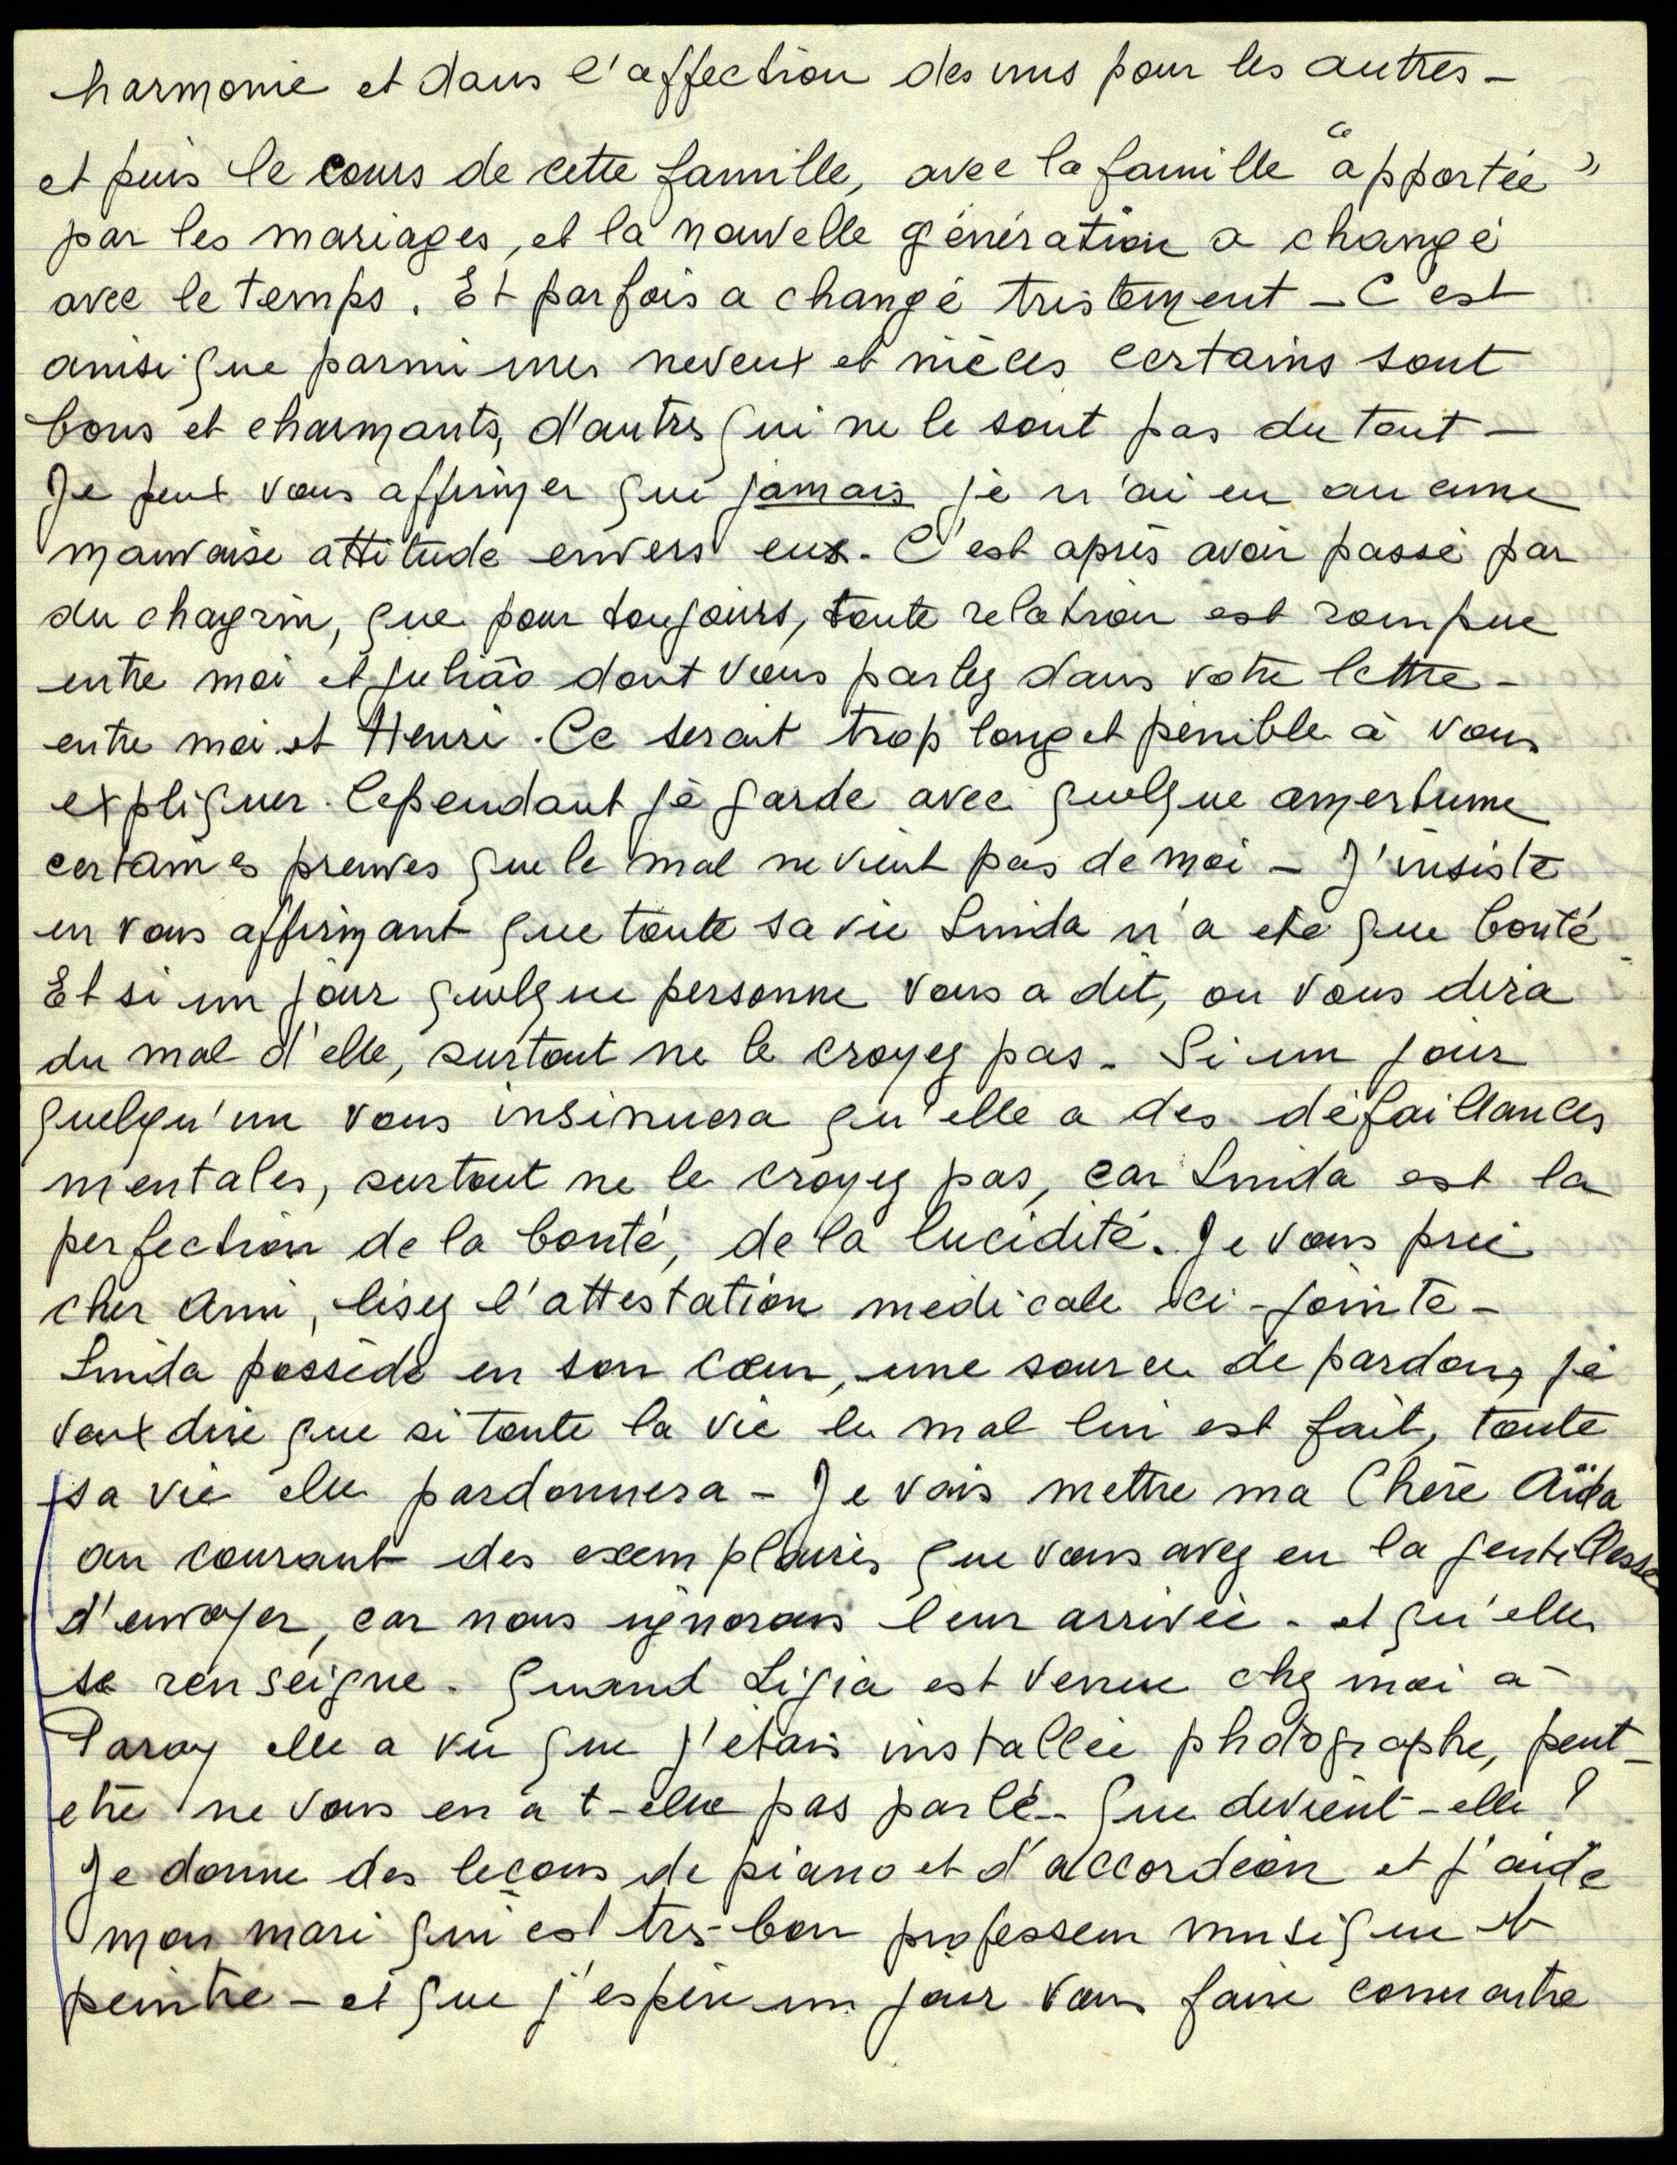 harmonie et dans l'affection des uns pour les autres -
et puis le cours de cette famille, avec la famille "apportée"
par les mariages, et la nouvelle génération a changé
avec le temps. Et parfois a changé tristement - C'est
ainsi que parmi mes neveux et nièces certains sont
bons et charmants, d'autres qui ne le sont pas du tout -
Je peux vous affirmer que jamais je n'ai eu aucune
mauvaise attitude envers eux. C'est après avoir passé par
du chagrin, que pour toujours, toute relation est rompue
entre moi et Julião dont vous parlez dans votre lettre -
entre moi et Henri. Ce serait trop long et pénible à vous
expliquer. Cependant je garde avec quelque amertume
certaines preuves que le mal ne vient pas de moi - J'insiste
en vous affirmant que toute sa vie Linida n'a été que bonté -
Et si un jour quelque personne vous a dit, ou vous dira
du mal d'elle, surtout ne le croyez pas - Si un jour
quelqu'un vous insinuera qu'elle a des défaillances
mentales, surtout ne le croyez pas, car Linida est la
perfection de la bonté, de la lucidité. Je vous prie
cher Ami, lisez l'attestation médicale ci-jointe -
Linida possède en son cœur, une source de pardons, je
veux dire que si toute la vie le mal lui est fait, toute
sa vie elle pardonnera - Je vais mettre ma Chère Aïda
au courant des exemplaires que vous avez eu la gentillesse
d'envoyer, car nous ignorons leur arrivée - et qu'elle
se renseigne. Quand Ligia est venue chez moi à
Paray elle a vu que j'étais installée photographe, peut-
être ne vous en a t-elle pas parlé - Que devient-elle ?
Je donne des leçons de piano et d'accordéon et j'aide
mon mari qui est très-bon professeur musique et
peintre - et que j'espère un jour vous faire connaitre